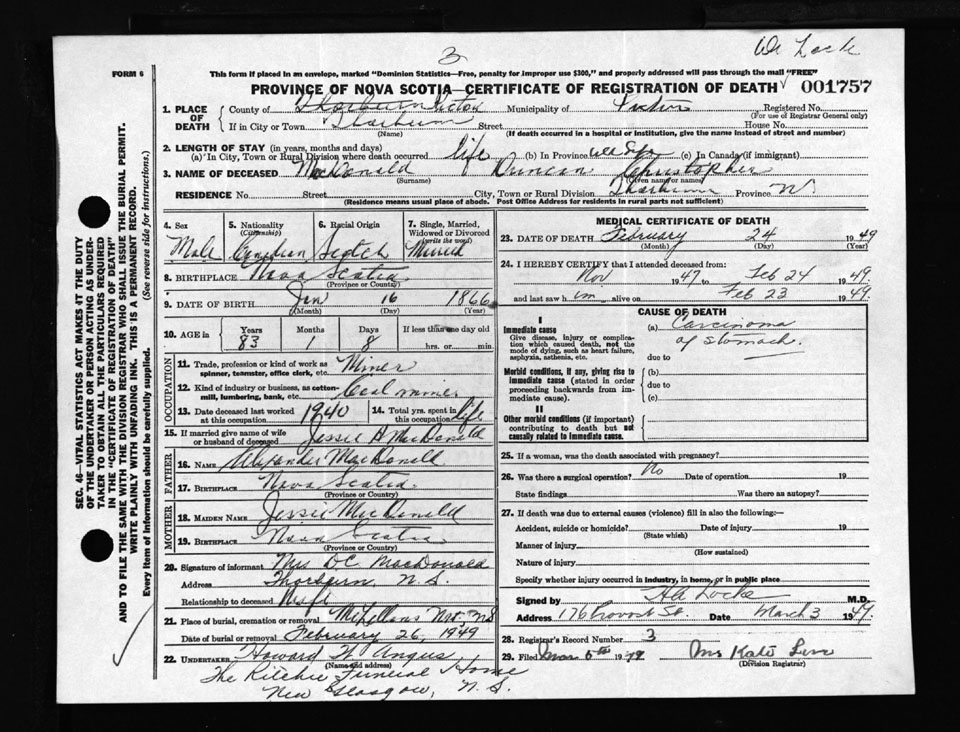 3
FORM 6
This form if placed in an envelope, marked "Dominion Statistics—Free, penalty for improper use $300," and properly addressed will pass through the mail "FREE"
PROVINCE OF NOVA SCOTIA—CERTIFICATE OF REGISTRATION OF DEATH 001757
1. PLACE OF DEATH County of Thorburn Pictou Municipality of Pictou Registered No.
(For use of Registrar General only)
If in City or Town Thorburn Street House No.
(Name) (If death occurred in a hospital or institution, give the name instead of street and number)
2. LENGTH OF STAY (in years, months and days)
(a) In City, Town or Rural Division where death occurred life (b) In Province life (c) In Canada (if immigrant)
3. NAME OF DECEASED MacDonald Duncan Christopher
(Surname) (Given name or names)
RESIDENCE No. Street City, Town or Rural Division Thorburn Province N
(Residence means usual place of abode. Post Office Address for residents in rural parts not sufficient)
4. Sex Male
5. Nationality (Citizenship) Canadian
6. Racial Origin Scotch
7. Single, Married, Widowed or Divorced (write the word) Married
8. BIRTHPLACE Nova Scotia
(Province or Country)
9. DATE OF BIRTH Jan 16 1866
(Month) (Day) (Year)
10. AGE in Years 83 Months 1 Days 8 If less than one day old hrs. or min.
OCCUPATION
11. Trade, profession or kind of work as spinner, teamster, office clerk, etc. Miner
12. Kind of industry or business, as cotton-mill, lumbering, bank, etc. Coal mine
13. Date deceased last worked at this occupation 1940 14. Total yrs. spent in this occupation life
15. If married give name of wife or husband of deceased Jessie MacDonald
FATHER
16. NAME Alexander MacDonald
17. BIRTHPLACE Nova Scotia
(Province or Country)
MOTHER
18. MAIDEN NAME Jessie MacDonald
19. BIRTHPLACE Nova Scotia
(Province or Country)
20. Signature of informant Mrs D.C. MacDonald
Address Thorburn, N.S.
Relationship to deceased Wife
21. Place of burial, cremation or removal McLellans N.S.
Date of burial or removal February 26, 1949
22. UNDERTAKER Howard W. Angus
(Name and address)
The Ritchie Funeral Home
New Glasgow, N.S.
MEDICAL CERTIFICATE OF DEATH
23. DATE OF DEATH February 24 1949
(Month) (Day) (Year)
24. I HEREBY CERTIFY that I attended deceased from:
Nov 1947 to Feb 24 1949
and last saw him alive on Feb 23 1949.
CAUSE OF DEATH
I
Immediate cause
Give disease, injury or complication which caused death, not the mode of dying, such as heart failure, asphyxia, asthenia, etc.
(a) Carcinoma of stomach.
due to
Morbid conditions, if any, giving rise to immediate cause (stated in order proceeding backwards from immediate cause).
(b)
due to
(c)
II
Other morbid conditions (if important) contributing to death but not causally related to immediate cause.
25. If a woman, was the death associated with pregnancy?
26. Was there a surgical operation? No Date of operation 19
State findings Was there an autopsy?
27. If death was due to external causes (violence) fill in also the following:—
Accident, suicide or homicide? Date of injury 19
(State which)
Manner of injury
(How sustained)
Nature of injury
Specify whether injury occurred in industry, in home, or in public place
Signed by Locke M.D.
Address 176 Provost St. Date March 3 1949
28. Registrar's Record Number 3
29. Filed Mar 5th 1949 Mrs Kate
(Division Registrar)
SEC. 46—VITAL STATISTICS ACT MAKES IT THE DUTY
OF THE UNDERTAKER OR PERSON ACTING AS UNDER-
TAKER TO OBTAIN ALL THE PARTICULARS REQUIRED
IN THE "CERTIFICATE OF REGISTRATION OF DEATH"
AND TO FILE THE SAME WITH THE DIVISION REGISTRAR WHO SHALL ISSUE THE BURIAL PERMIT.
WRITE PLAINLY WITH UNFADING INK. THIS IS A PERMANENT RECORD.
Every item of Information should be carefully supplied. (See reverse side for instructions.)